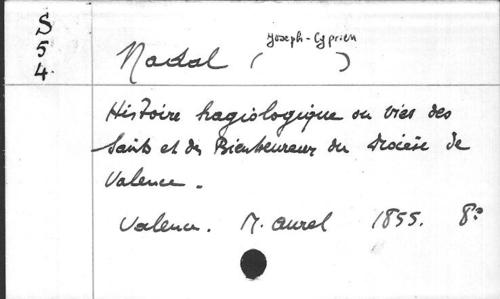 S
54
Nadal (Joseph-Cyprien)
Histoire hagiologique ou vies des
Saints et des Bienheureux du diocèse de
Valence.
Valence. M. Aurel 1855. 8º